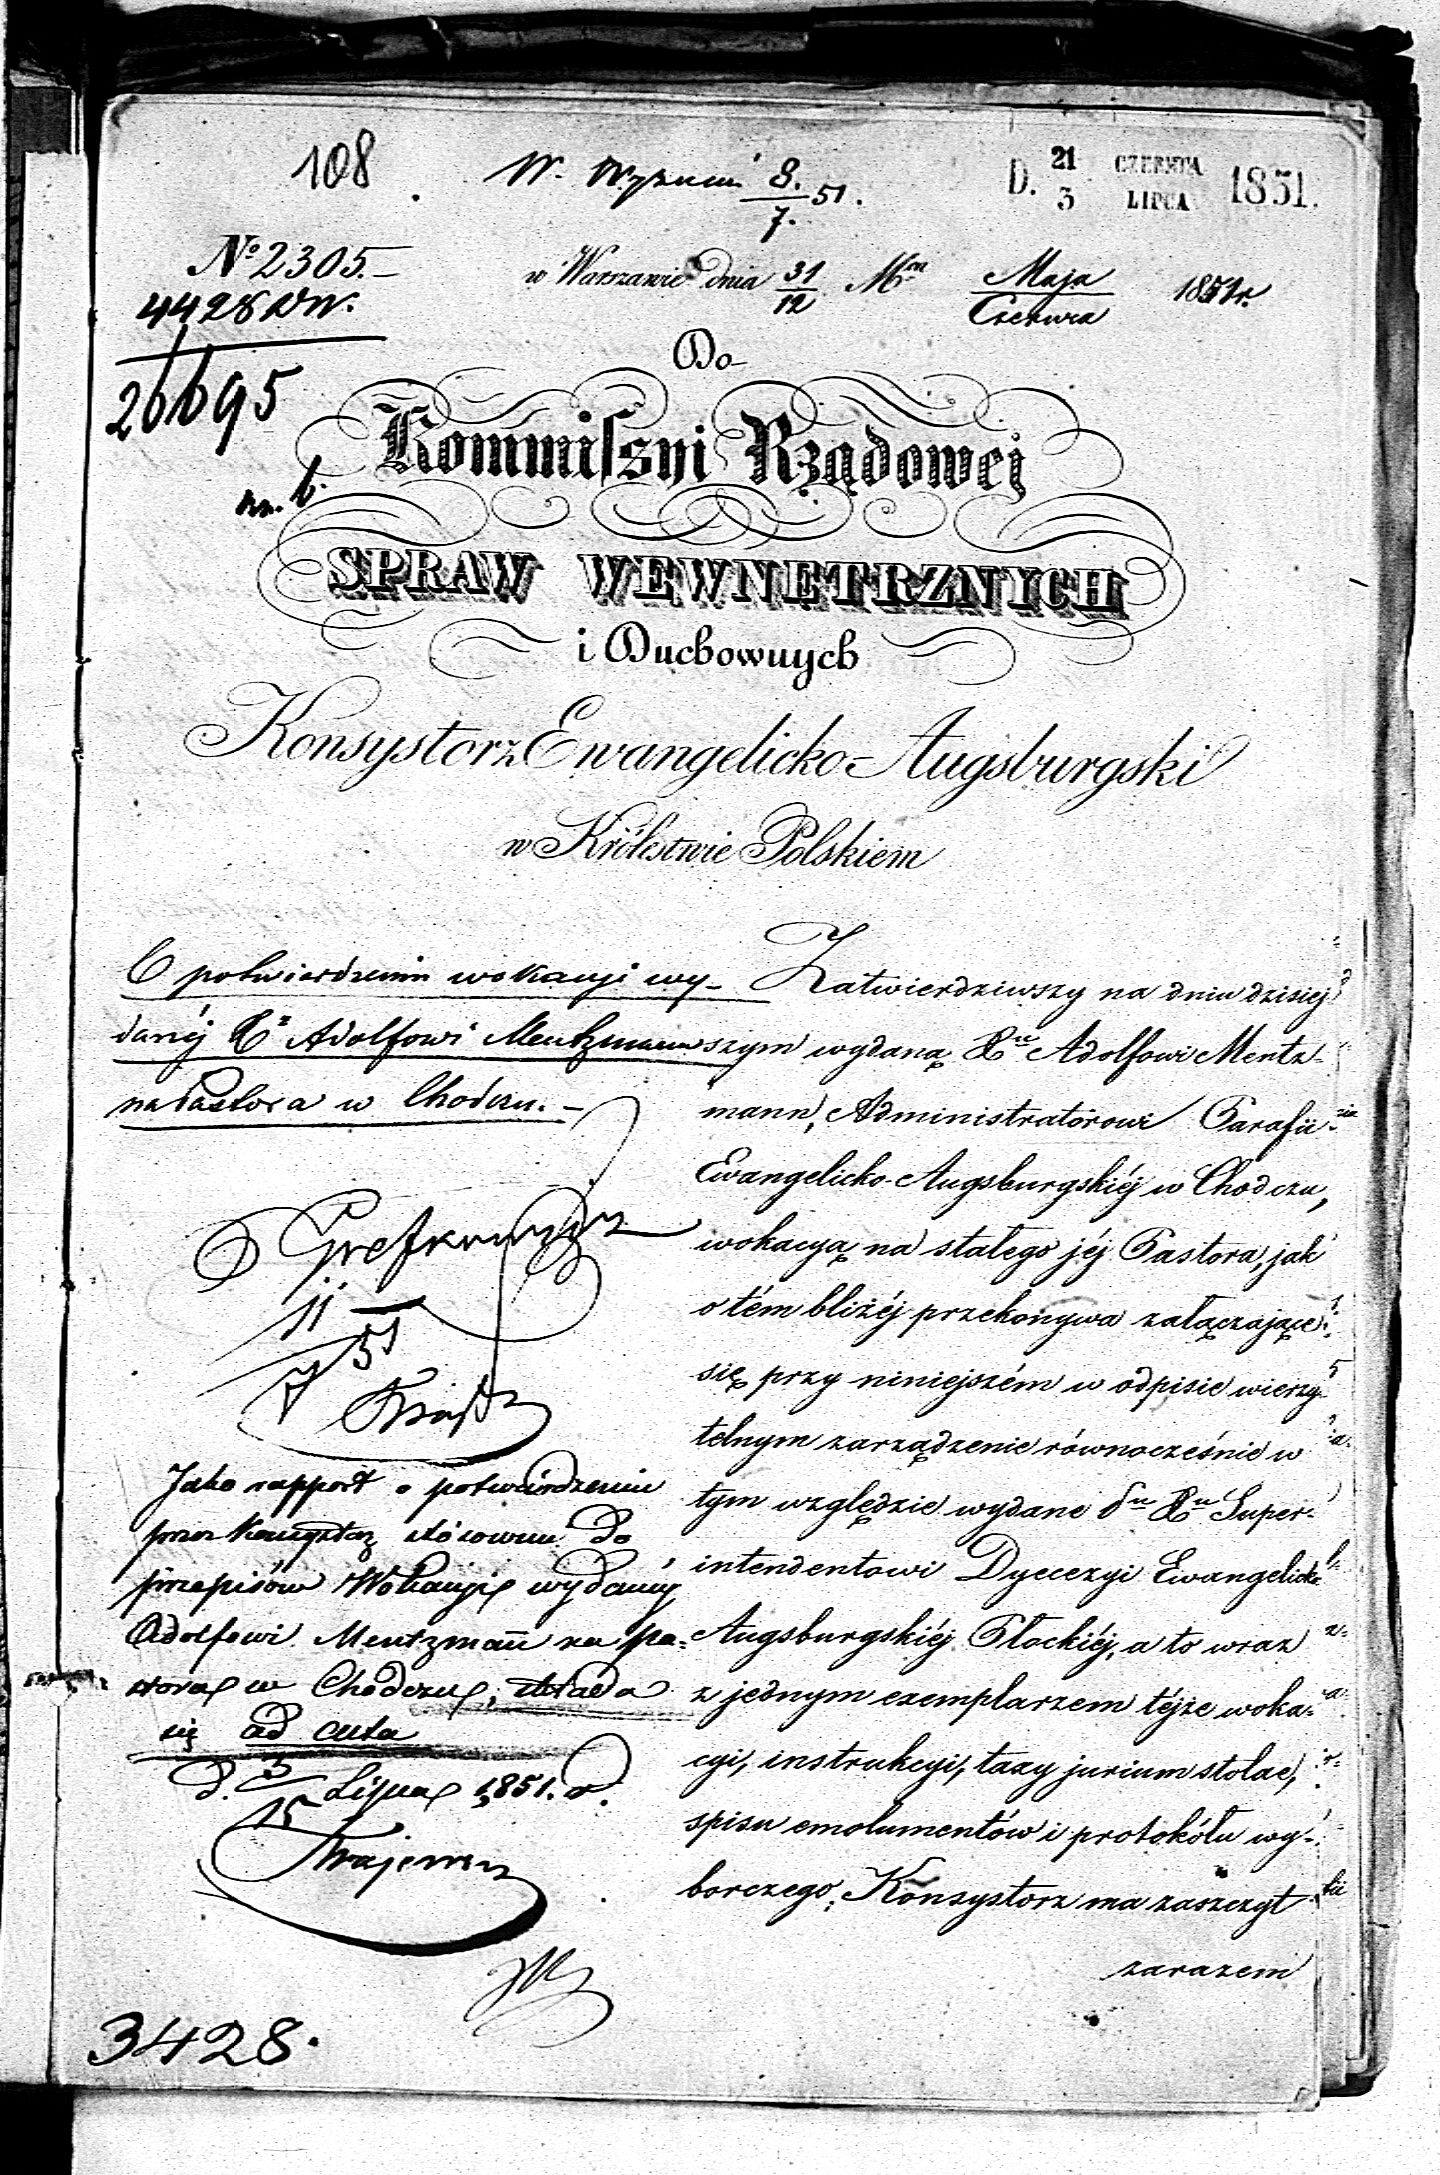 108
W. Wyznań 8./7. 51.
D. 21/3 CZERWCA/LIPCA 1851.
No 2305.
4428 WW.
26695
w Warszawie dnia 31/12 Mca Maja/Czerwca 1851 r.
Do
Kommissyi Rządowej
SPRAW WEWNĘTRZNYCH
i Duchownych
Konsystorz Ewangelicko-Augsburgski
w Królestwie Polskiem
O potwierdzeniu wokacyi wy-
danéj Xu Adolfowi Mentzmann
na Pastora w Chodczu.
Zatwierdziwszy na dniu dzisiej-
szym wydaną Xu Adolfowi Mentz-
mann, Administratorowi Parafii
Ewangelicko-Augsburgskiéj w Chodczu,
wokacyą na stałego jéj Pastora, jak
o tém bliżéj przekonywa załączające
się przy niniejszém w odpisie wierzy-
telnym zarządzenie równocześnie w
tym względzie wydane Xu Super-
intendentowi Dyecezyi Ewangelicko
Augsburgskiéj Płockiéj, a to wraz
z jednym exemplarzem téjże woka-
cyi, instrukcyi, taxy jurium stolae,
spisu emolumentów i protokółu wy-
borczego, Konsystorz ma zaszczyt
zarazem
11/7 51
Jako rapport o potwierdzeniu
przez Konsystorz stósownie do
przepisów Wokacyi wydanéj
Adolfowi Mentzmann na pa-
stora w Chodczu, składa
się ad acta
d. 3/15 Lipca 1851. r.
3428.